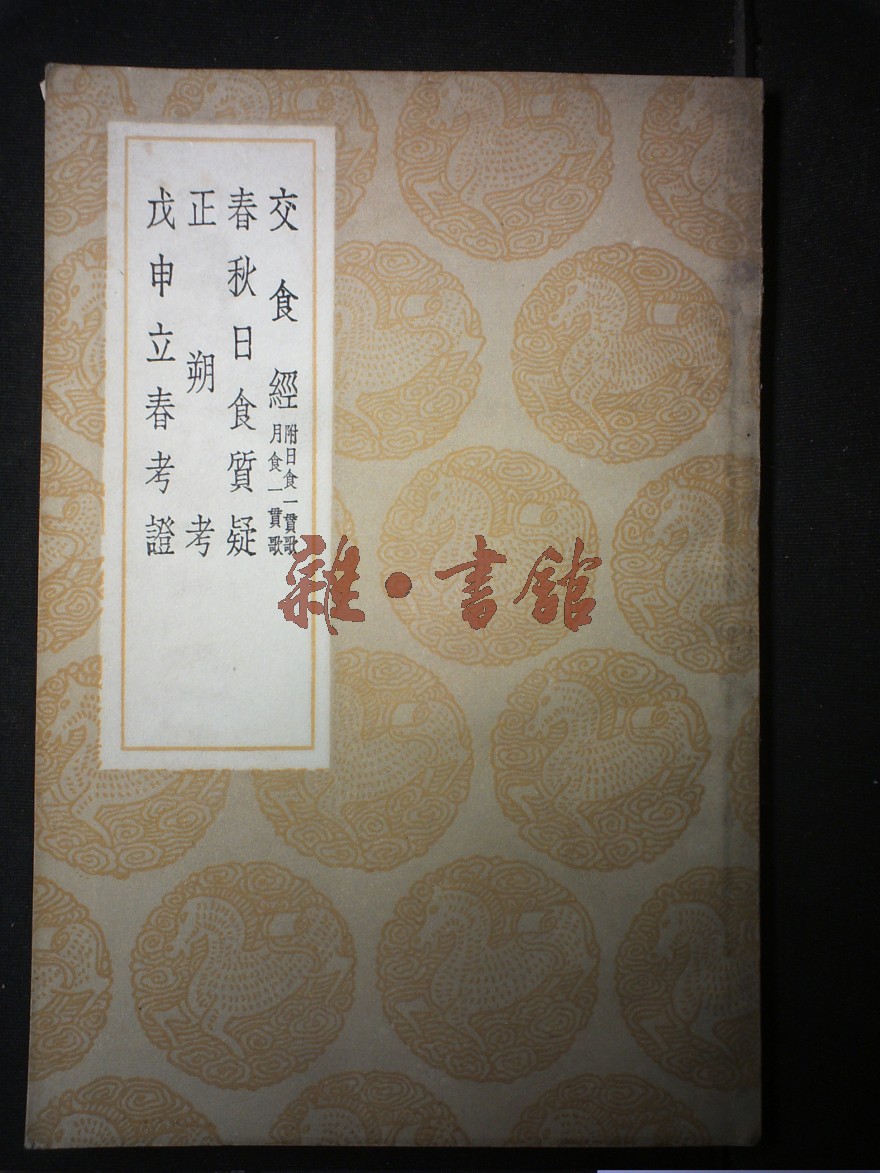 交食經 附日食一貫歌 月食一貫歌
春秋日食質疑
正朔考
戊申立春考證
雜·書館